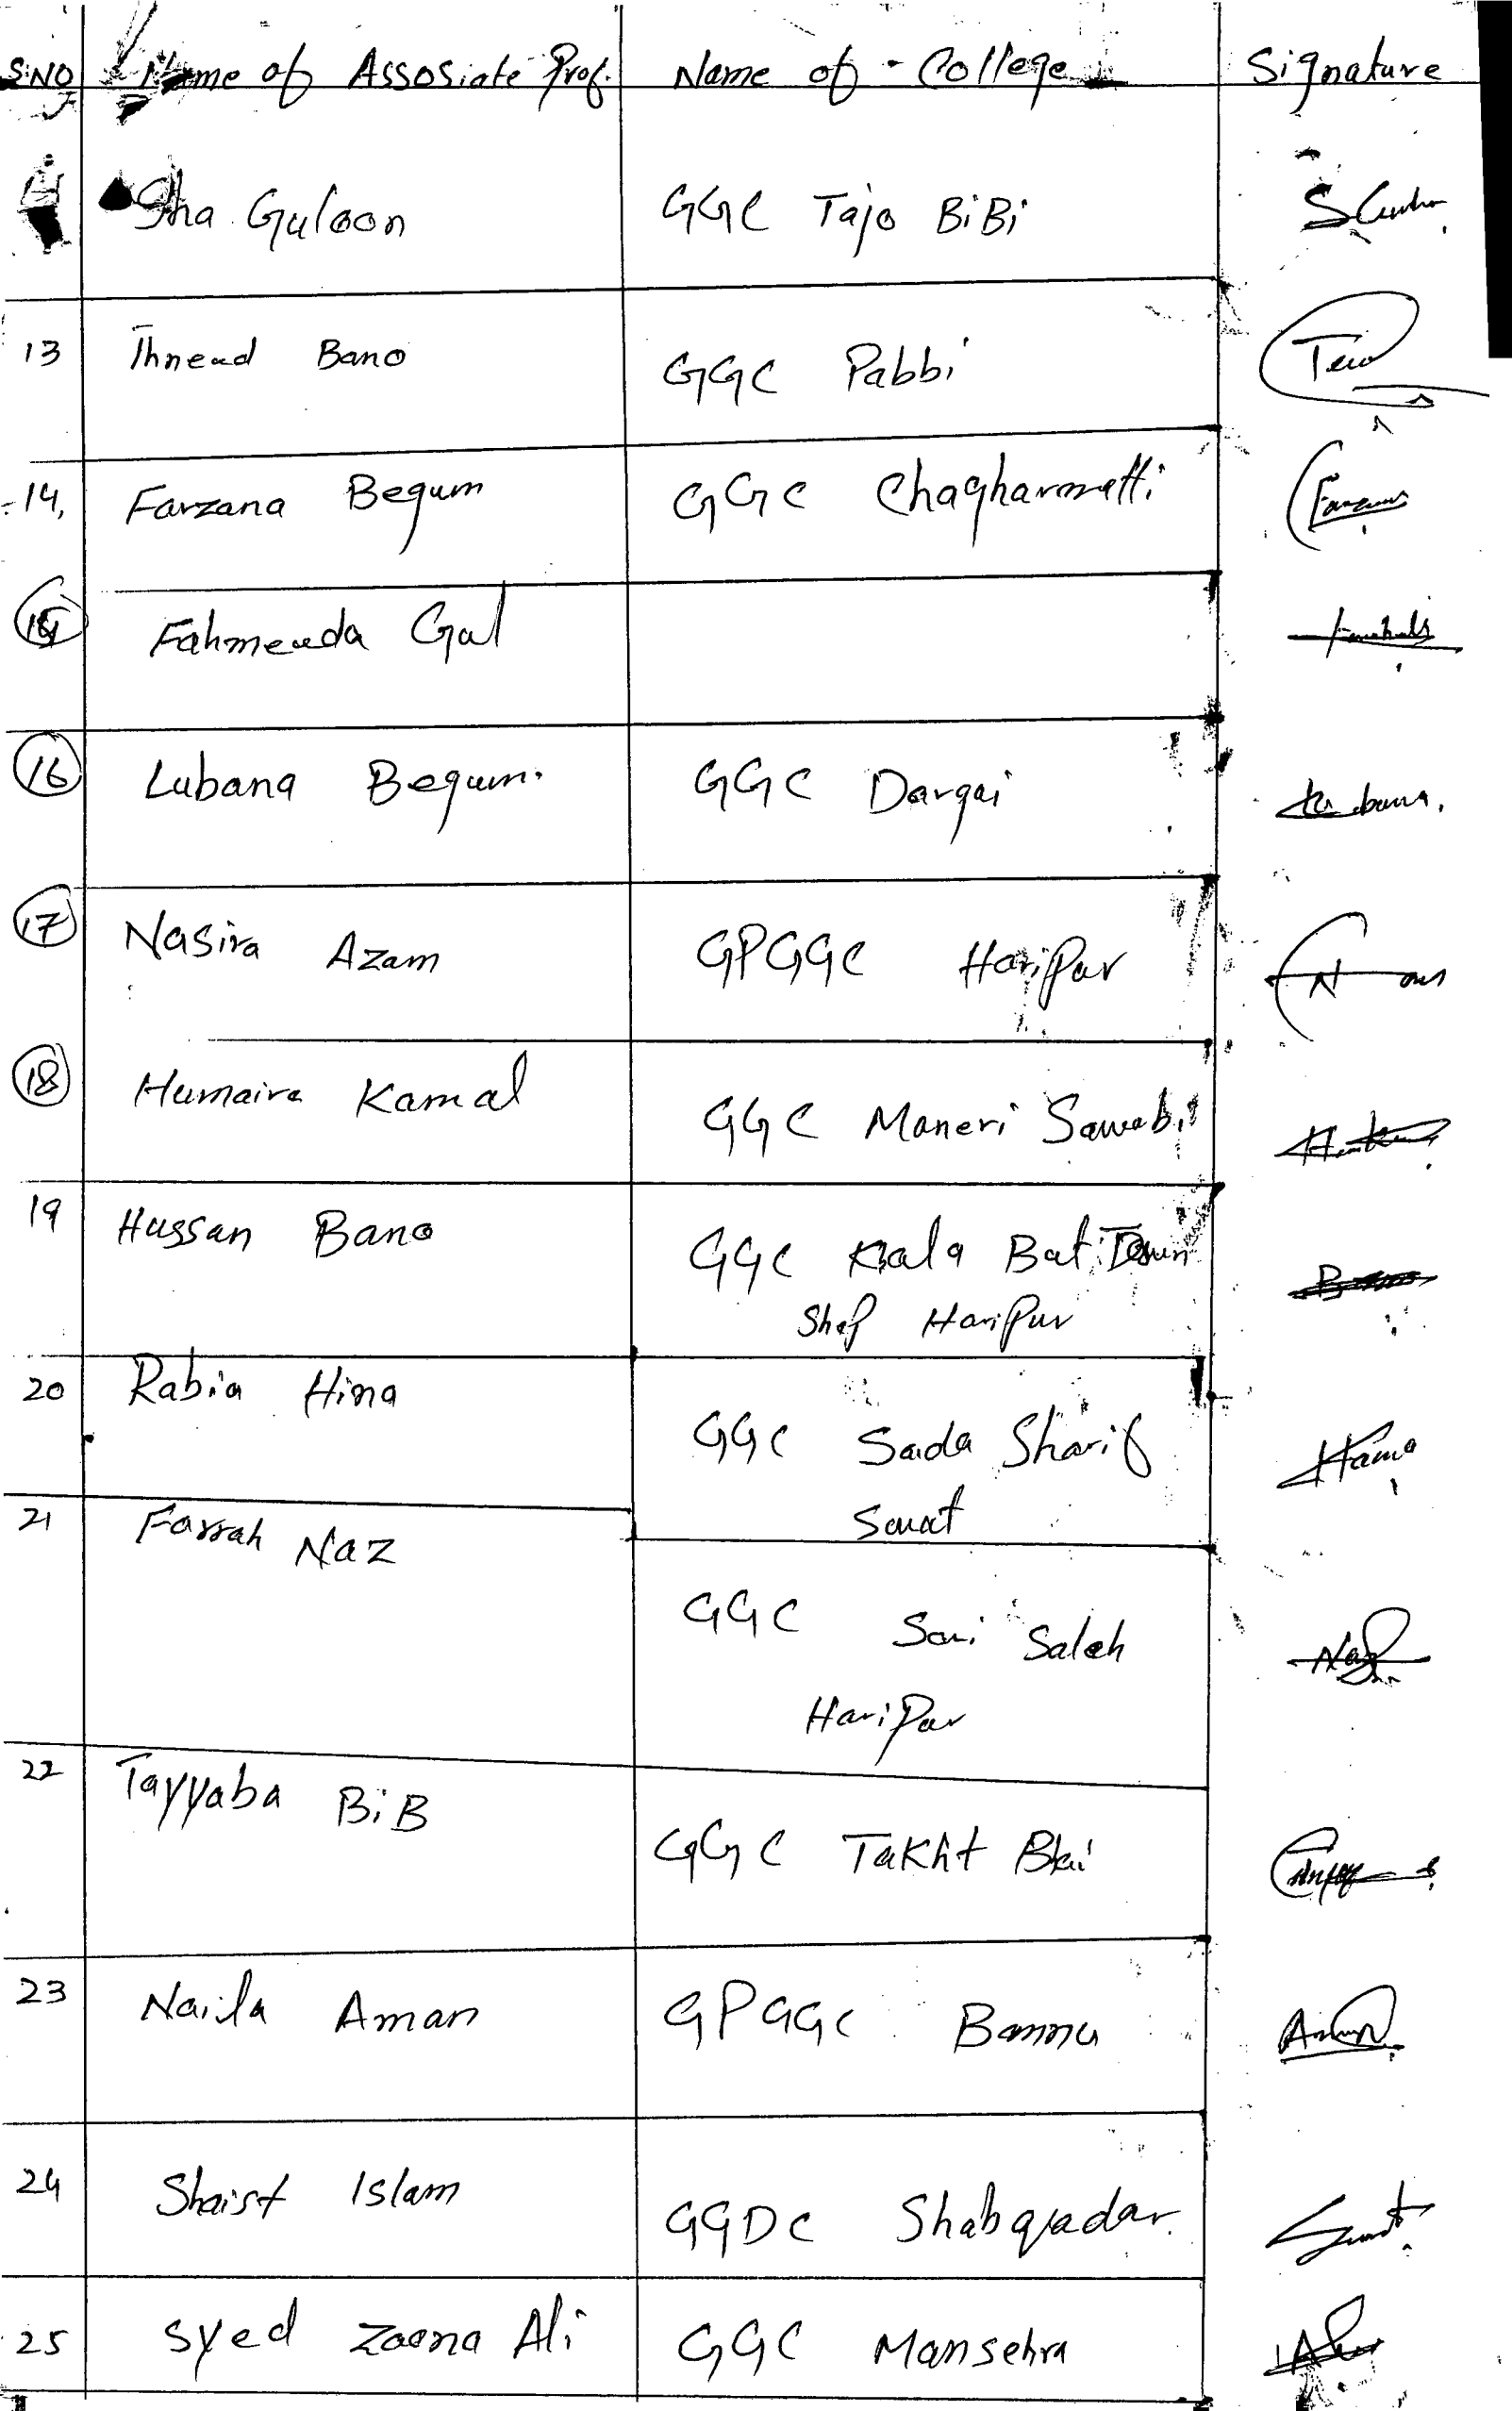 S.NO Name of Assosiate Prof. Name of College Signature
Sha Guloon GGC Tajo BiBi
13 Thnead Bano GGC Pabbi
14, Farzana Begum GGC Chagharmatti
15 Fahmeeda Gul
16 Lubana Begum. GGC Dargai Lubana.
17 Nasira Azam GPGGC Haripur
18 Humaira Kamal GGC Maneri Sawabi
19 Hussan Bano GGC Kala Bat Town
Haripur
20 Rabia Hina GGC Saida Sharif
Sawat
21 Farrah Naz GGC Sari Saleh Naz
Haripur
22 Tayyaba BiB GGC Takht Bhai
23 Naila Aman GPGGC Bannu
24 Shaist Islam GGDC Shabqadar.
25 Syed Zaena Ali GGC Mansehra